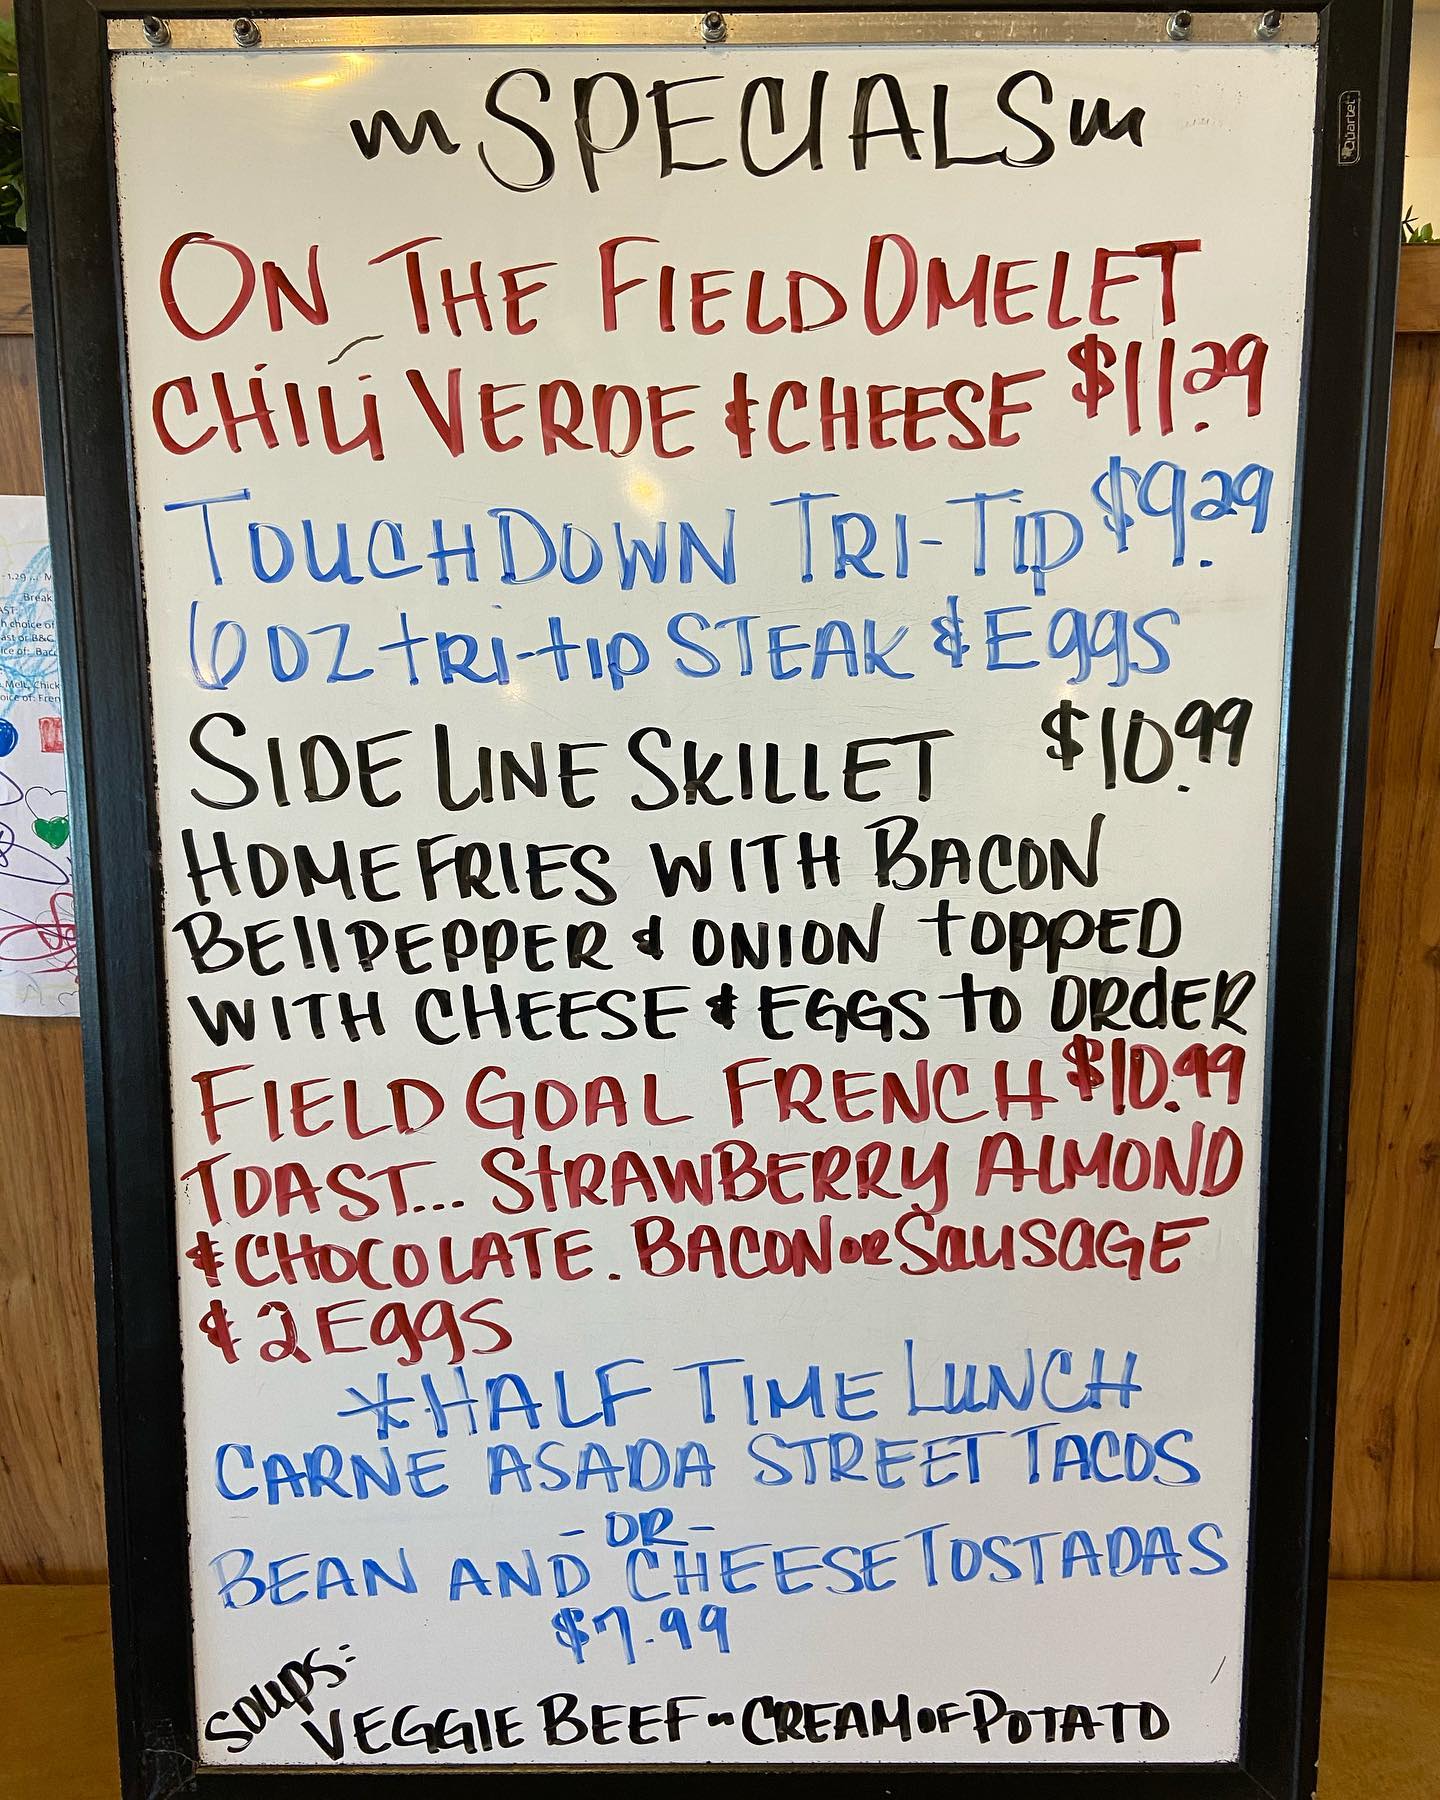 SPECIALS
ON THE FIELD OMELET
CHILI VERDE & CHEESE $11.29
TOUCHDOWN TRI-TIP $9.29
6 OZ tRI-tIP STEAK & Eggs
SIDE LINE SKILLET $10.99
HOME FRIES WITH BACON
BEllPEPPER & ONION TOPPED
WITH CHEESE & EGGS to ORdER
FIELD GOAL FRENCH $10.99
TOAST... StRAWBERRY ALMOND
& CHOCOLATE. BACON OR SAUSAGE
& 2 Eggs
*HALF TIME LUNCH
CARNE ASADA STREET TACOS
- OR -
BEAN AND CHEESE TOSTADAS
$7.99
SOUPS:
VEGGIE BEEF - CREAM OF POTATO
Quartet
-1.29
Break
AST:
h choice of
ast or B&C
ice of: Bac
Melt, Chick
oice of: Fren